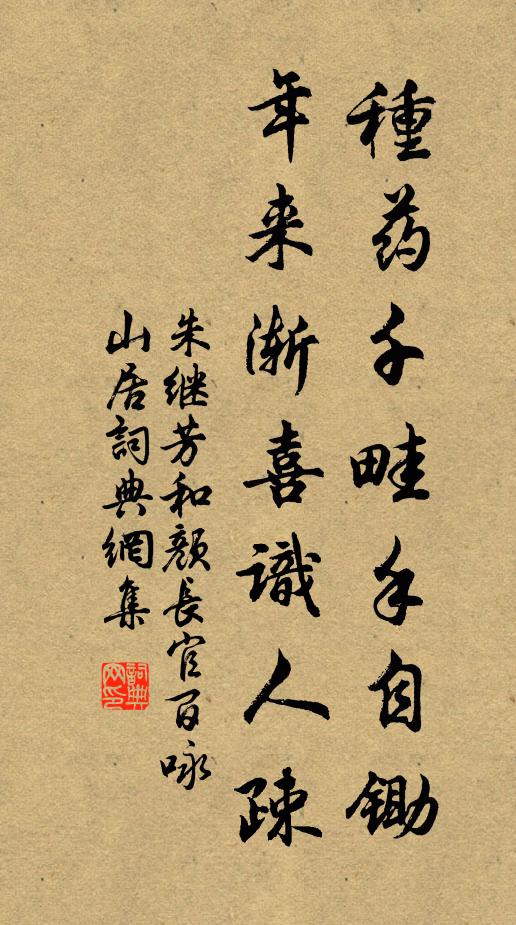 種药千畦手自鋤
年来渐喜識人疎
朱继芳和颜長官百咏
山居詞典網集
詞典網印